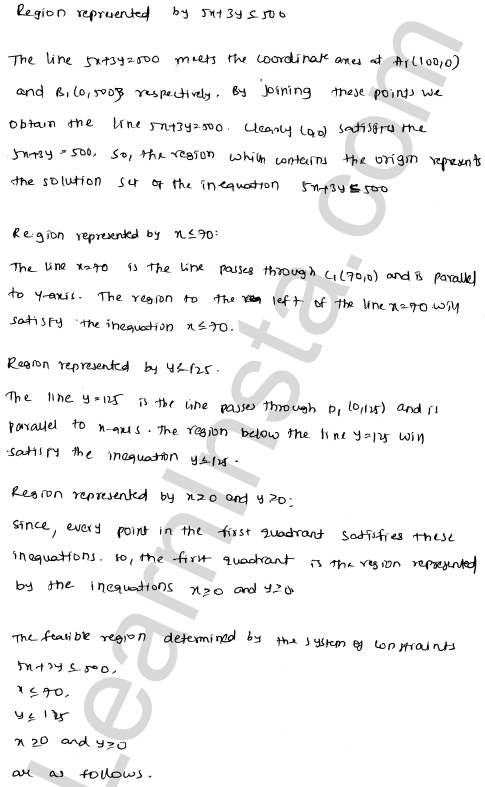 Region represented by 5x+3y ≤ 500
The line 5x+3y=500 meets the coordinate axes at A₁(100,0)
and B₁(0,500/3) respectively. By joining these points we
obtain the line 5x+3y=500. Clearly (0,0) satisfies the
5x+3y = 500. So, the region which contains the origin represents
the solution set of the inequation 5x+3y ≤ 500
Region represented by x ≤ 70:
The line x=70 is the line passes through C₁(70,0) and is parallel
to Y-axis. The region to the left of the line x=70 will
satisfy the inequation x ≤ 70.
Region represented by y ≤ 125.
The line y=125 is the line passes through D₁(0,125) and is
parallel to x-axis. The region below the line y=125 will
satisfy the inequation y ≤ 125.
Region represented by x≥0 and y≥0:
since, every point in the first quadrant satisfies these
inequations. so, the first quadrant is the region represented
by the inequations x≥0 and y≥0
The feasible region determined by the system of constraints
5x+3y ≤ 500,
x ≤ 70,
y ≤ 125
x ≥0 and y≥0
are as follows.
LearnInsta.com